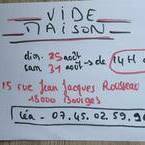 VIDE
MAISON
dim. 25 août
sam 31 août -s de 14H
15 rue Jean Jacques Rousseau
18000 Bourges
Léa - 07.45.02.59.9